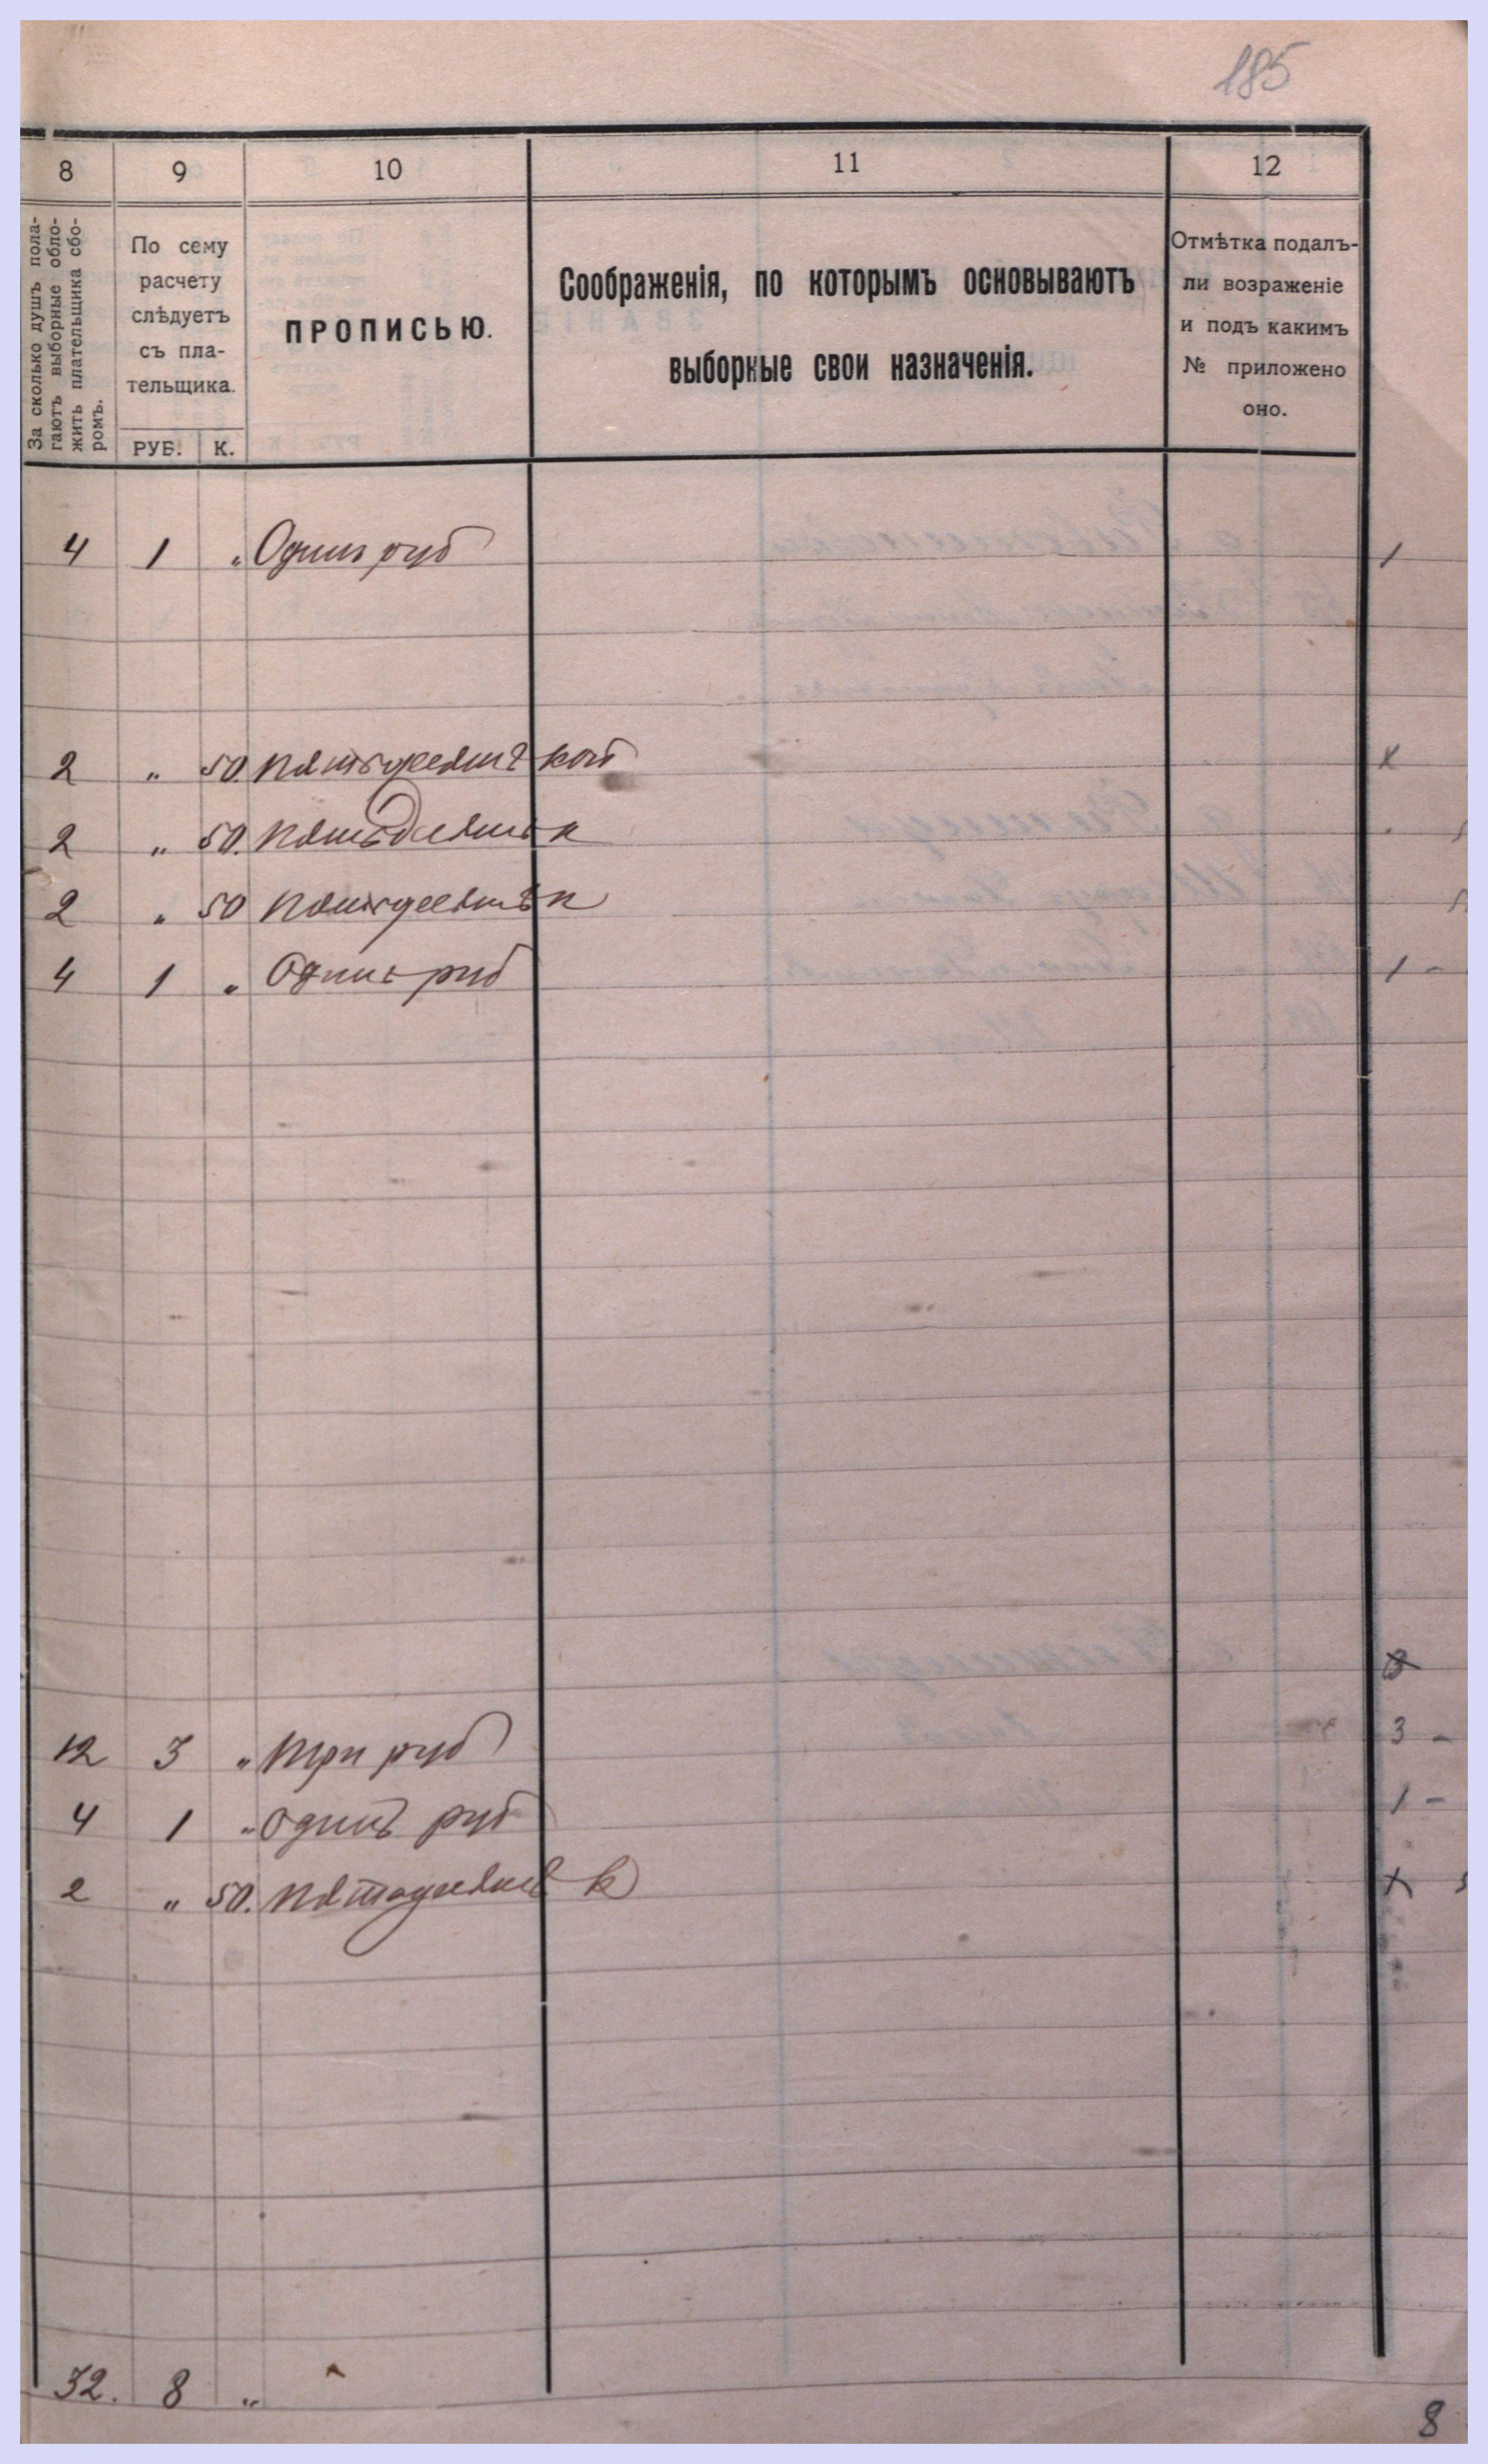 185
8 9 10 11 12
За сколько душъ пола-
гаютъ выборные обло-
жить плательщика сбо-
ромъ.
По сему
расчету
слѣдуетъ
съ пла-
тельщика.
РУБ. К.
ПРОПИСЬЮ.
Соображенія, по которымъ основываютъ
выборные свои назначенія.
Отмѣтка подалъ-
ли возраженіе
и подъ какимъ
№ приложено
оно.
4 1 „ Одинъ руб 1
2 „ 50. пятьдесятъ коп
2 „ 50. пятьдесятъ к
2 „ 50 пятьдесятъ к
4 1 „ Одинъ руб 1 -
12 3 „ три руб 3 -
4 1 „ одинъ руб 1 -
2 „ 50. пятьдесятъ к
32. 8 „
8